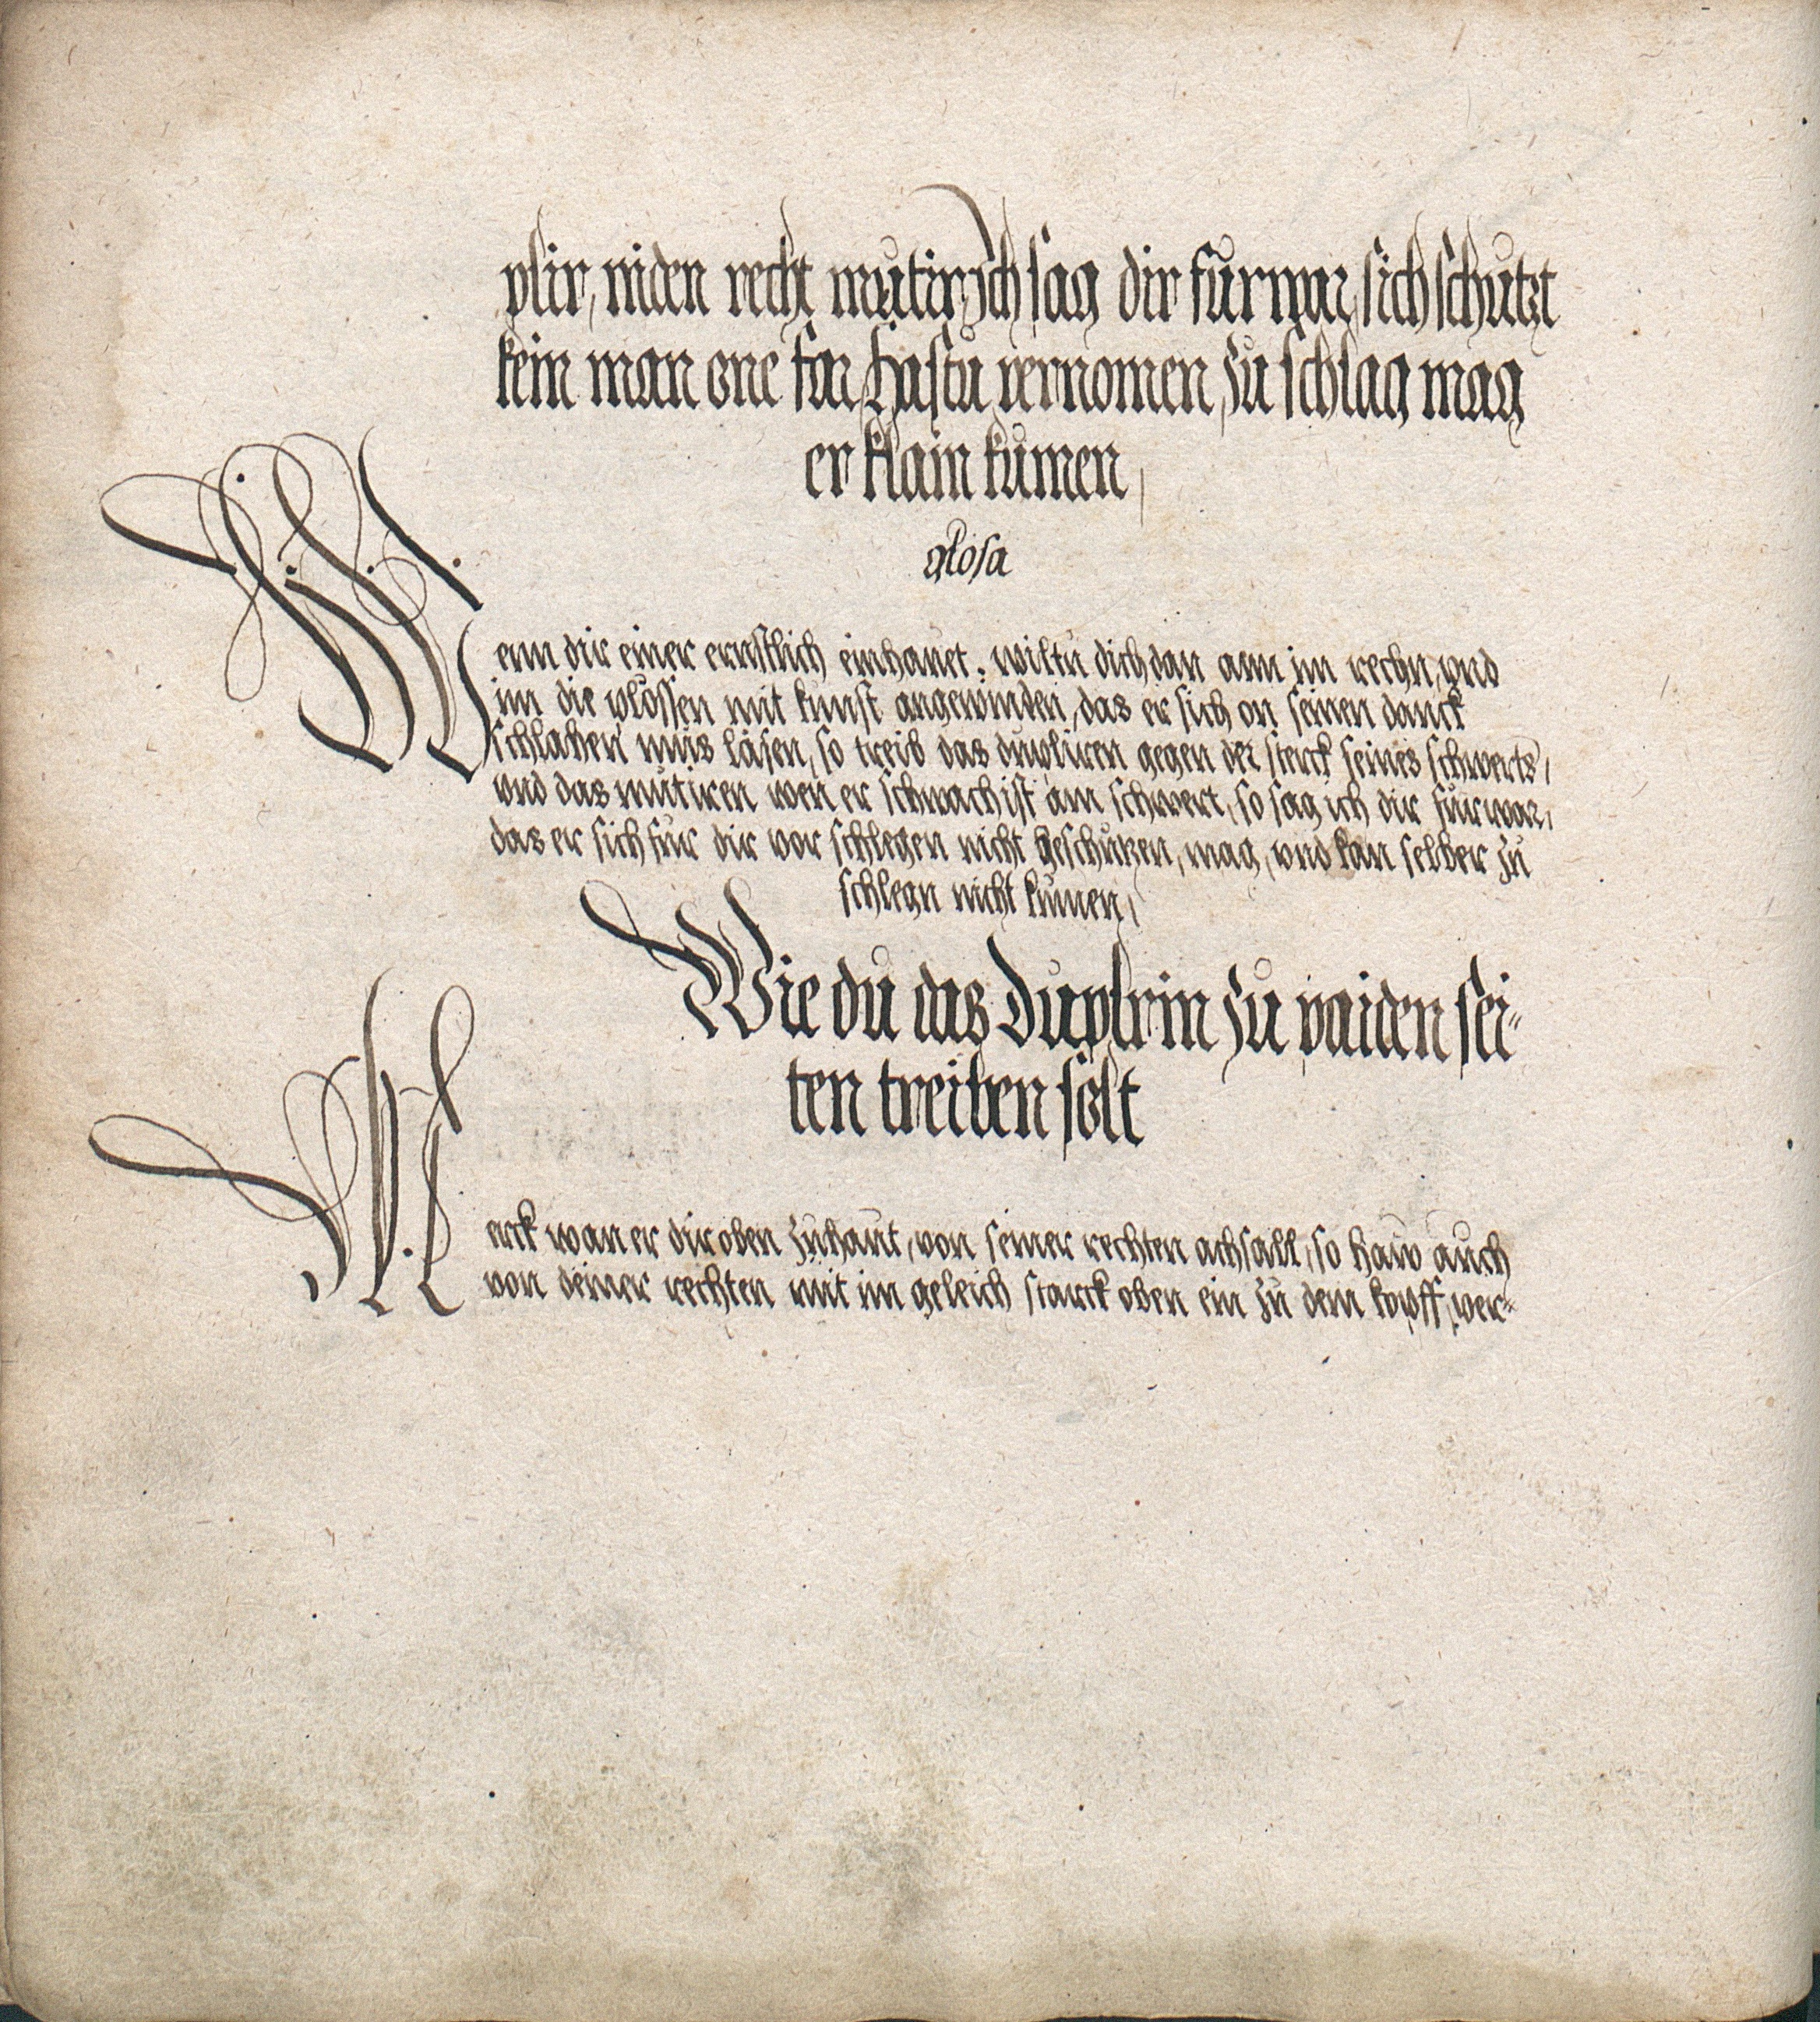 plir, niden recht mutir Ich sag dir furwar, sich schutzt
kein man one far, Hastu vernomen, zu schlag mag
er klain kumen,
glosa
Wenn dir einer ernstlich einhauet, wiltu dich dan ann im rechn, vnd
im die plössen mit kunst angewinden, das er sich on seinen danck
schlahen mus lasen, so treib das dupliren gegen der sterck seines schwerts,
vnd das mutiren wen er schwach ist am schwert, so sag ich dir furwar,
das er sich fur dir vor schlegen nicht geschutzen, mag, vnd kan selber zu
schlegn nicht kumen,
Wie du das Duplirin zu paiden sei-
ten treiben solt
Merck wan er dir oben zuhaut, von seiner rechten achsall, so haw auch
von deiner rechten mit im geleich starck oben ein zu dem kopff, ver-